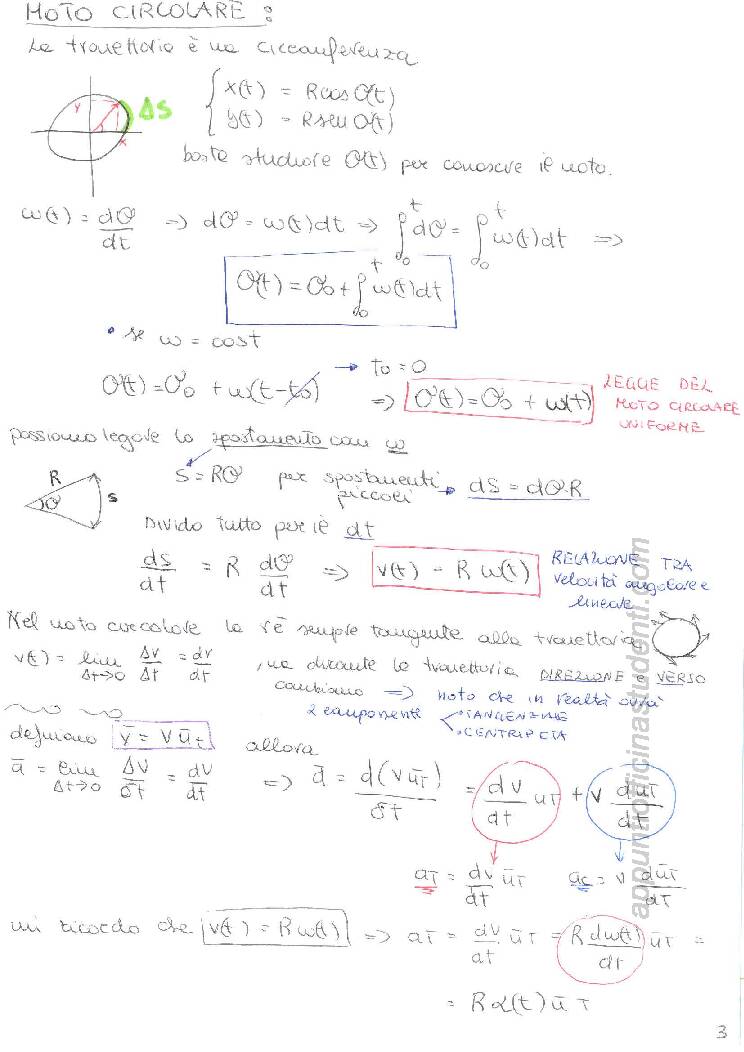 MOTO CIRCOLARE :
La traiettoria è una circonferenza
y
ΔS
x
{ x(t) = R cos θ(t)
{ y(t) = R sen θ(t)
basta studiare θ(t) per conoscere il moto.
ω(t) = dθ/dt => dθ = ω(t)dt => ∫₀ᵗ dθ = ∫₀ᵗ ω(t)dt =>
θ(t) = θ₀ + ∫₀ᵗ ω(t)dt
• se ω = cost
→ t₀ = 0
θ(t) = θ₀ + ω(t - t₀) => θ(t) = θ₀ + ω(t)
LEGGE DEL
MOTO CIRCOLARE
UNIFORME
possiamo legare lo spostamento con ω
R
θ
s
S = Rθ per spostamenti piccoli → dS = dθ R
Divido tutto per il dt
ds/dt = R dθ/dt => v(t) = R ω(t)
RELAZIONE TRA
velocità angolare e
lineare
Nel moto circolare la v è sempre tangente alla traiettoria
v(t) = lim Δt→0 Δv/Δt = dv/dt , ma durante la traiettoria DIREZIONE e VERSO
cambiano => noto che in realtà avrà
2 componenti
• TANGENZIALE
• CENTRIPETA
definiamo v̄ = V ūT allora
ā = lim Δt→0 ΔV/δt = dV/dt => ā = d(V ūT)/δt = dv/dt uT + v dūT/dt
aT = dv/dt ūT
ac = v dūT/dt
mi ricordo che v(t) = Rω(t) => aT = dv/dt ūT = R dω(t)/dt ūT =
= R α(t) ū T
appuntiofficinastudenti.com
3